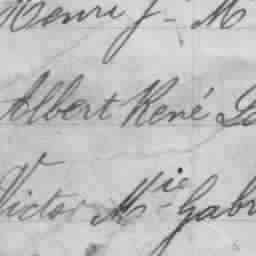 Henri J- M
Albert René
Victor Mie- Gabr